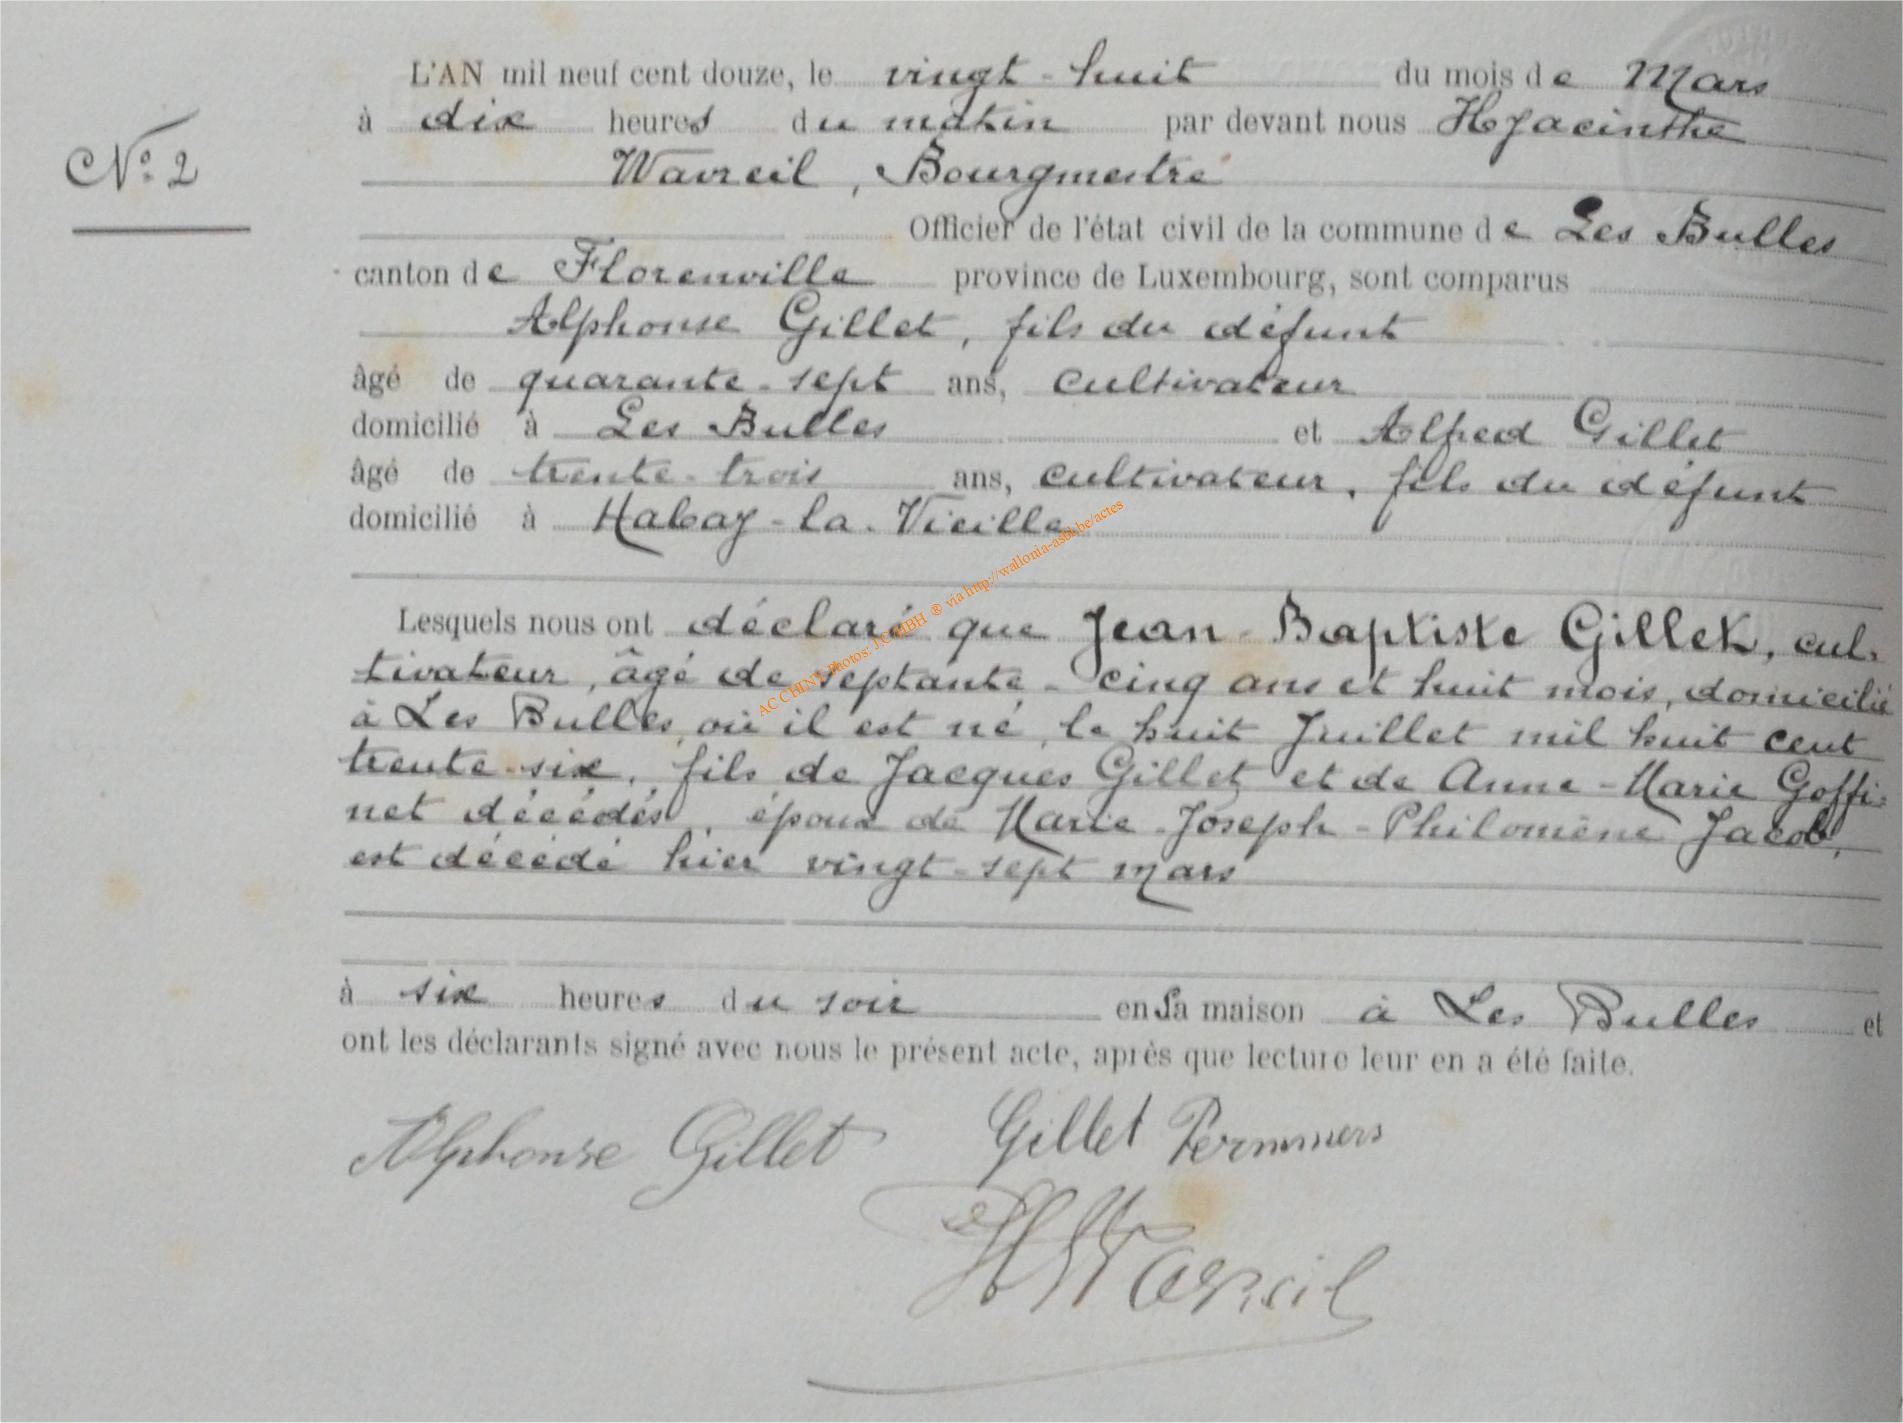 L'AN mil neuf cent douze, le vingt-huit du mois de Mars
N° 2
à dix heures du matin par devant nous Hyacinthe
Wavreil, Bourgmestre
Officier de l'état civil de la commune de Les Bulles
canton de Florenville province de Luxembourg, sont comparus
Alphonse Gillet, fils du défunt
âgé de quarante-sept ans, cultivateur
domicilié à Les Bulles et Alfred Gillet
âgé de trente-trois ans, cultivateur, fils du défunt
domicilié à Habay-la-Vieille
AC CHINY Photos: J.C. HBH ® via http://wallonia-asbl.be/actes
Lesquels nous ont déclaré que Jean-Baptiste Gillet, cul-
tivateur, âgé de septante-cinq ans et huit mois, domicilié
à Les Bulles, où il est né, le huit Juillet mil huit cent
trente-six, fils de Jacques Gillet et de Anne-Marie Goffi-
net décédés, époux de Marie-Joseph-Philomène Jacob,
est décédé hier vingt-sept mars
à six heures du soir en sa maison à Les Bulles et
ont les déclarants signé avec nous le présent acte, après que lecture leur en a été faite.
Alphonse Gillet Gillet Permmers
H Wavreil